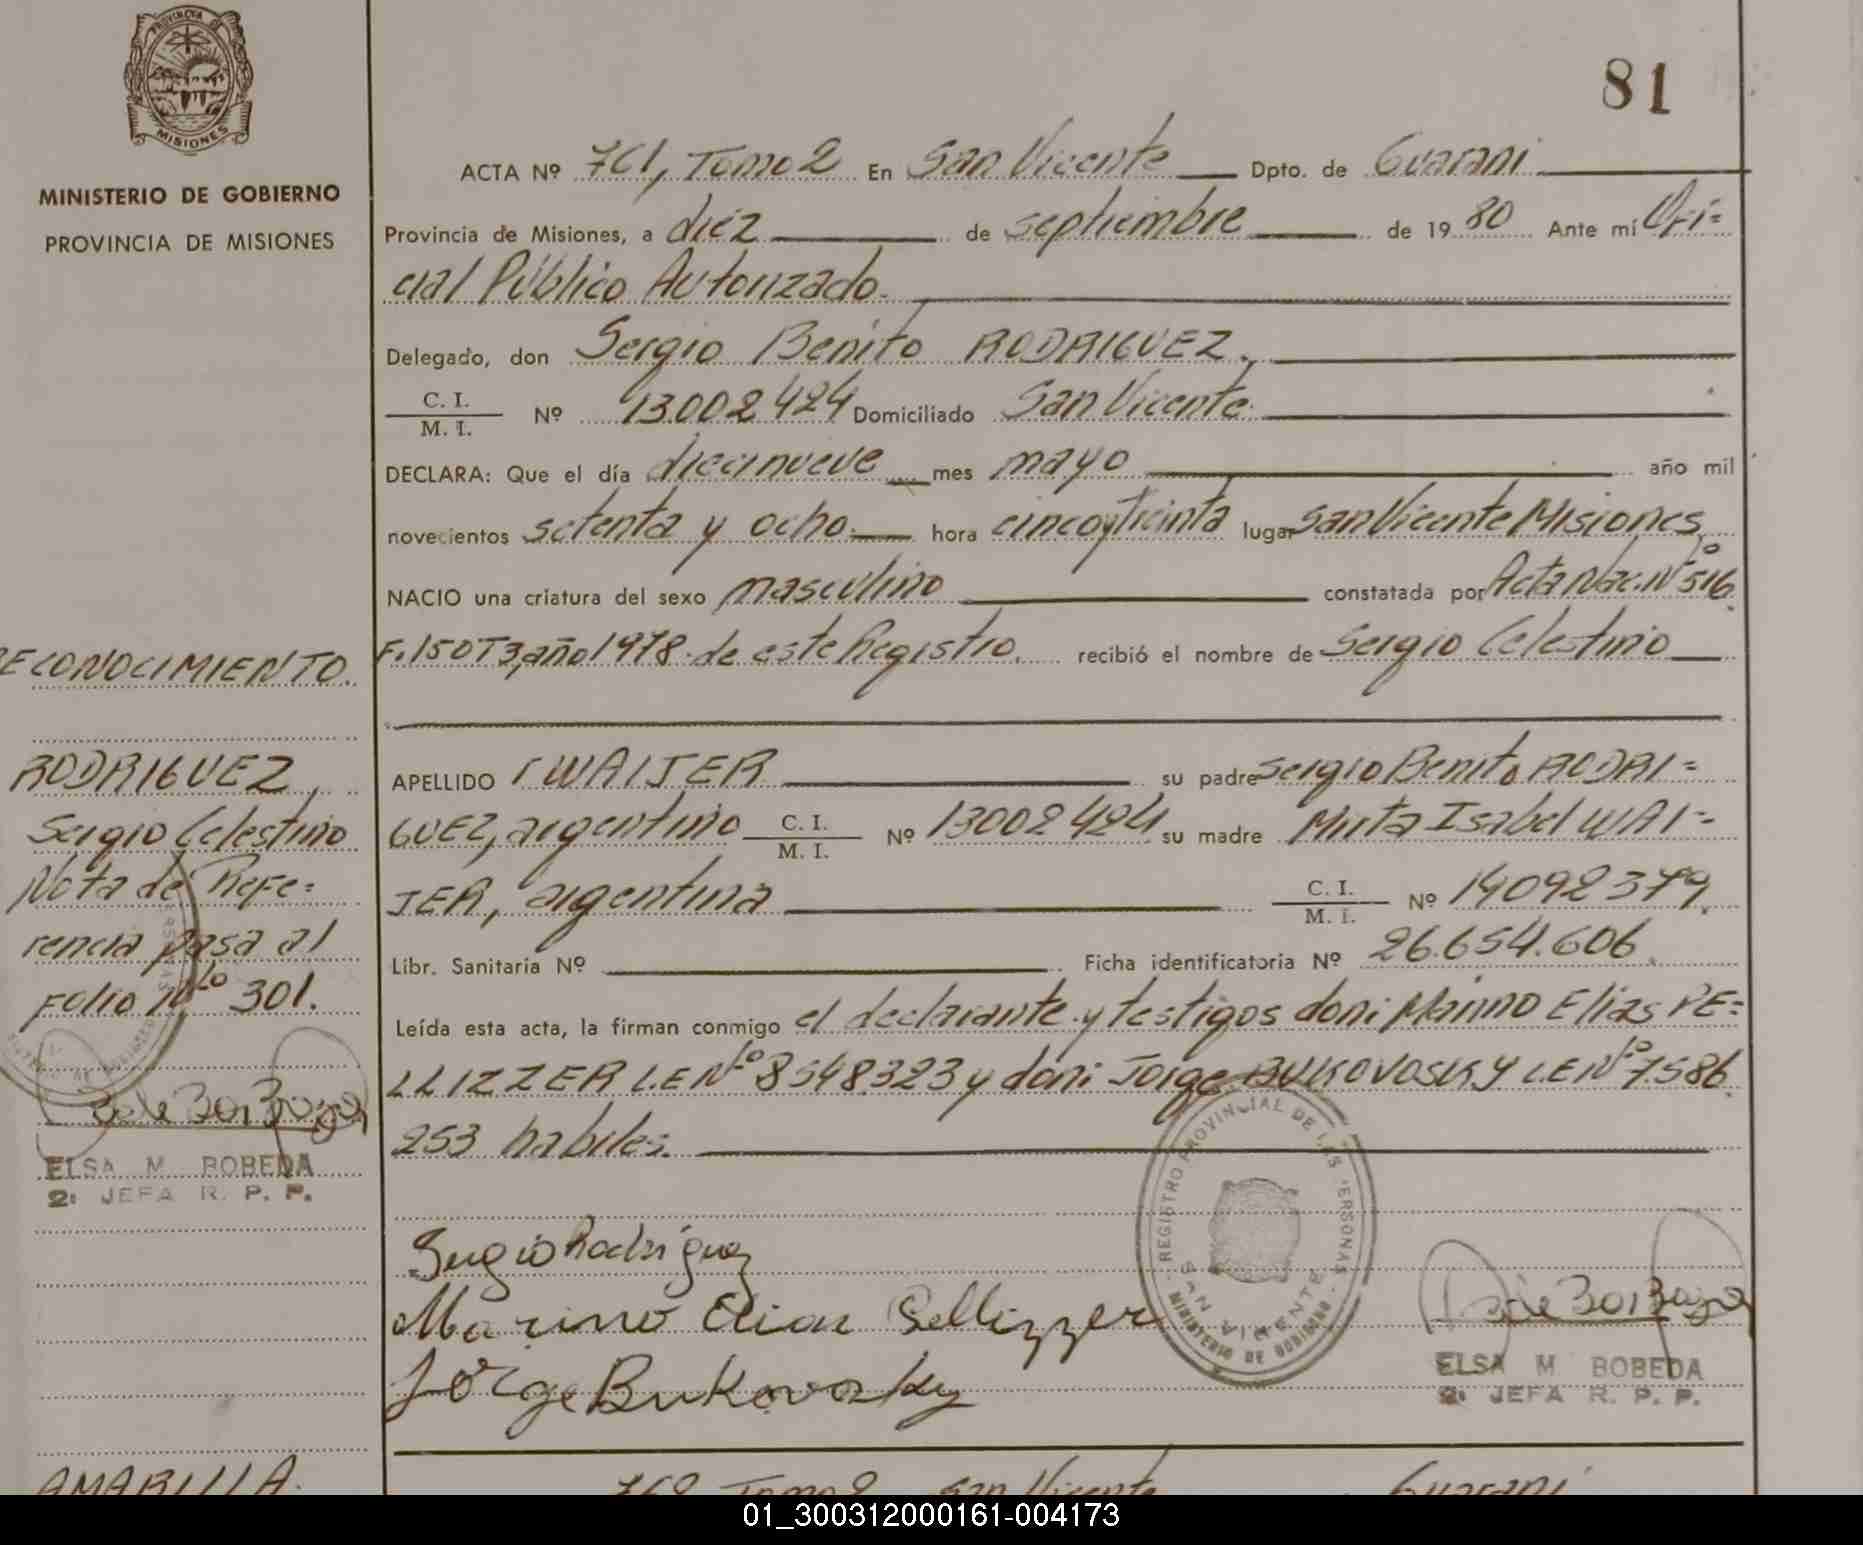 PROVINCIA DE
MISIONES
MINISTERIO DE GOBIERNO
PROVINCIA DE MISIONES
81
ACTA Nº 761, Tomo 2 En San Vicente Dpto. de Guarani
Provincia de Misiones, a diez de septiembre de 1980 Ante mí Ofi=
cial Público Autorizado.
Delegado, don Sergio Benito RODRIGUEZ.
C. I.
M. I. Nº 13.002424 Domiciliado San Vicente.
DECLARA: Que el día diecinueve mes mayo año mil
novecientos setenta y ocho hora cinco y treinta lugar San Vicente Misiones
NACIO una criatura del sexo masculino constatada por Acta Nac. Nº 516
F. 150 T3, año 1978 de este Registro. recibió el nombre de Sergio Celestino
APELLIDO WAIJER su padre Sergio Benito RODRI=
GUEZ, argentino C. I. M. I. Nº 13002424 su madre Mirta Isabel WAI=
JER, argentina C. I. M. I. Nº 14092379.
Libr. Sanitaria Nº Ficha identificatoria Nº 26.654.606.
Leída esta acta, la firman conmigo el declarante y testigos don: Marino Elias PE=
LLIZZER L.E Nº 8548323 y don: Jorge BUKOVOSKY L.E Nº 7.586.
253 habiles.
RECONOCIMIENTO.
RODRIGUEZ,
Sergio Celestino
Nota de Refe=
rencia pasa al
Folio Nº 301.
ELSA M BOBEDA
2: JEFA R. P. P.
Sergio Rodriguez
Marino Elias Pellizzer
Jorge Bukovosky
REGISTRO PROVINCIAL DE LAS PERSONAS
SAN VICENTE
MINISTERIO DE GOBIERNO
ELSA M BOBEDA
2: JEFA R. P. P.
AMARILLA.
Tomo 2 San Vicente Guarani
01_300312000161-004173